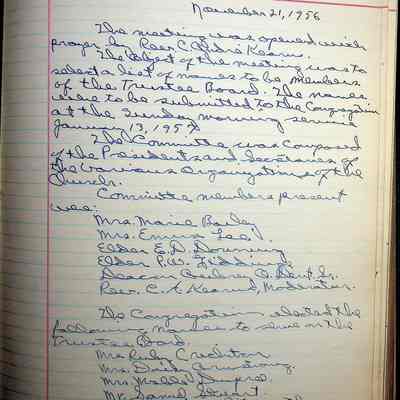 November 21, 1956
The meeting was opened with
prayer by Rev. C. André Kearns.
The object of the meeting was to
select a list of names to be members
of the Trustee Board. The names
were to be submitted to the Congregation
at the Sunday morning service
January 13, 1957.
The Committee was composed
of the Presidents and Secretaries of
the various Organizations of the
Church.
Committee members present
were:
Mrs. Marie Bailey
Mrs. Emma Lee
Elder E. D. Downing
Elder P. W.
Deacon O. Dent, Jr.
Rev. C. A. Kearns, Moderator.
The Congregation elected the
following names to serve on the
Trustee Board.
Mrs. Ruby
Mrs. Armstrong
Mrs. Dupree
Mr. Samuel Stuart